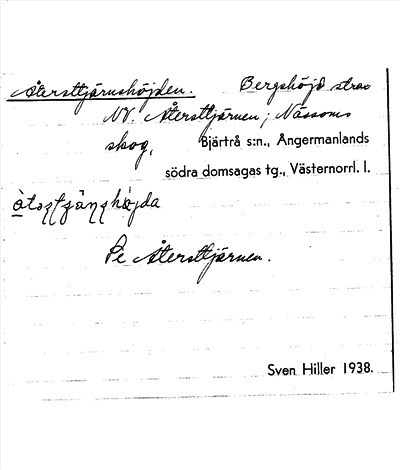 Återsttjärnshöjden. Bergshöjd strax
NV. Återsttjärnen; Nässoms
skog, Bjärtrå s:n., Ångermanlands
södra domsagas tg., Västernorrl. l.
Pe Återsttjärnen.
Sven Hiller 1938.